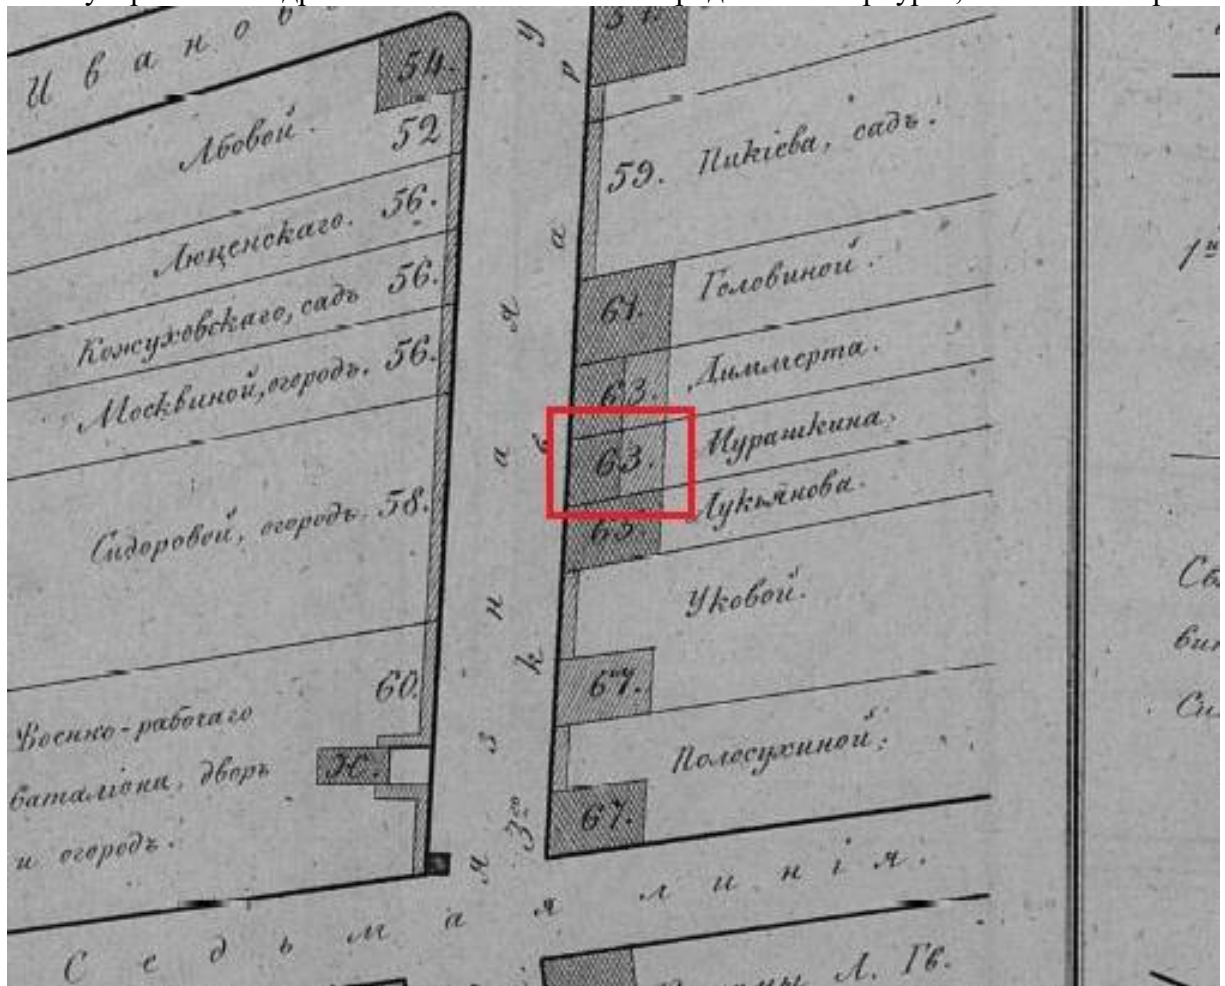 Ивановс
54.
Лбовой.
52
Люценскаго. 56.
Кожуховскаго, садъ 56.
Москвиной, огородъ. 56.
Сидоровой, огородъ. 58.
60.
Военно-рабочаго
баталіона, дворъ
и огородъ.
Ж.
59. Пикіева, садъ.
61. Головиной.
63. Диммерта.
63. Мурашкина.
63. Лукьянова.
Уковой.
67.
Полосухиной.
67.
Седьмая линія.
Л. Гв.
1й